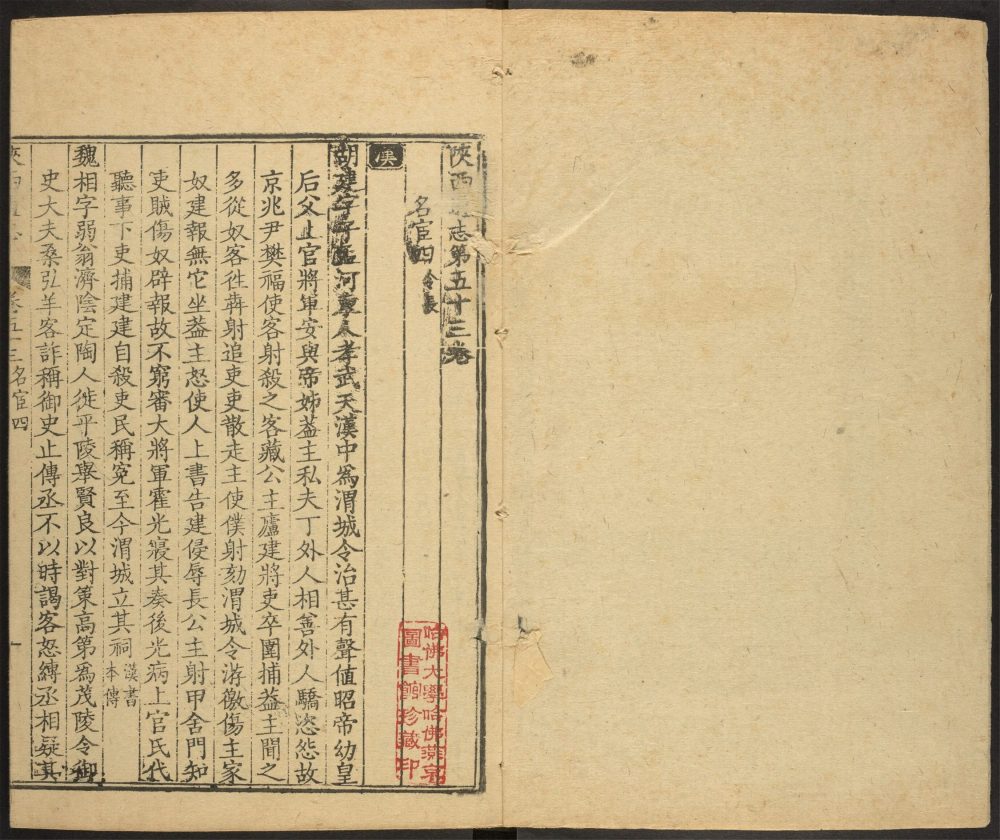 陝西通志第五十三卷
名宦四 令長
漢
胡建字子孟河東人孝武天漢中為渭城令治甚有聲値昭帝幼皇
后父上官將軍安與帝姊葢主私夫丁外人相善外人驕恣怨故
京兆尹樊福使客射殺之客藏公主廬建將吏卒圍捕葢主聞之
多從奴客徃犇射追吏吏散走主使僕射劾渭城令游徼傷主家
奴建報無它坐葢主怒使人上書告建侵辱長公主射甲舍門知
吏賊傷奴辟報故不窮審大將軍霍光寢其奏後光病上官氏代
聽事下吏捕建建自殺吏民稱寃至今渭城立其祠 漢書本傳
魏相字弱翁濟陰定陶人徙平陵舉賢良以對策高第爲茂陵令御
史大夫桑弘羊客詐稱御史止傳丞不以時謁客怒縛丞相疑其
卷五十三名宦四
一
哈佛大學哈佛燕京
圖書館珍藏印